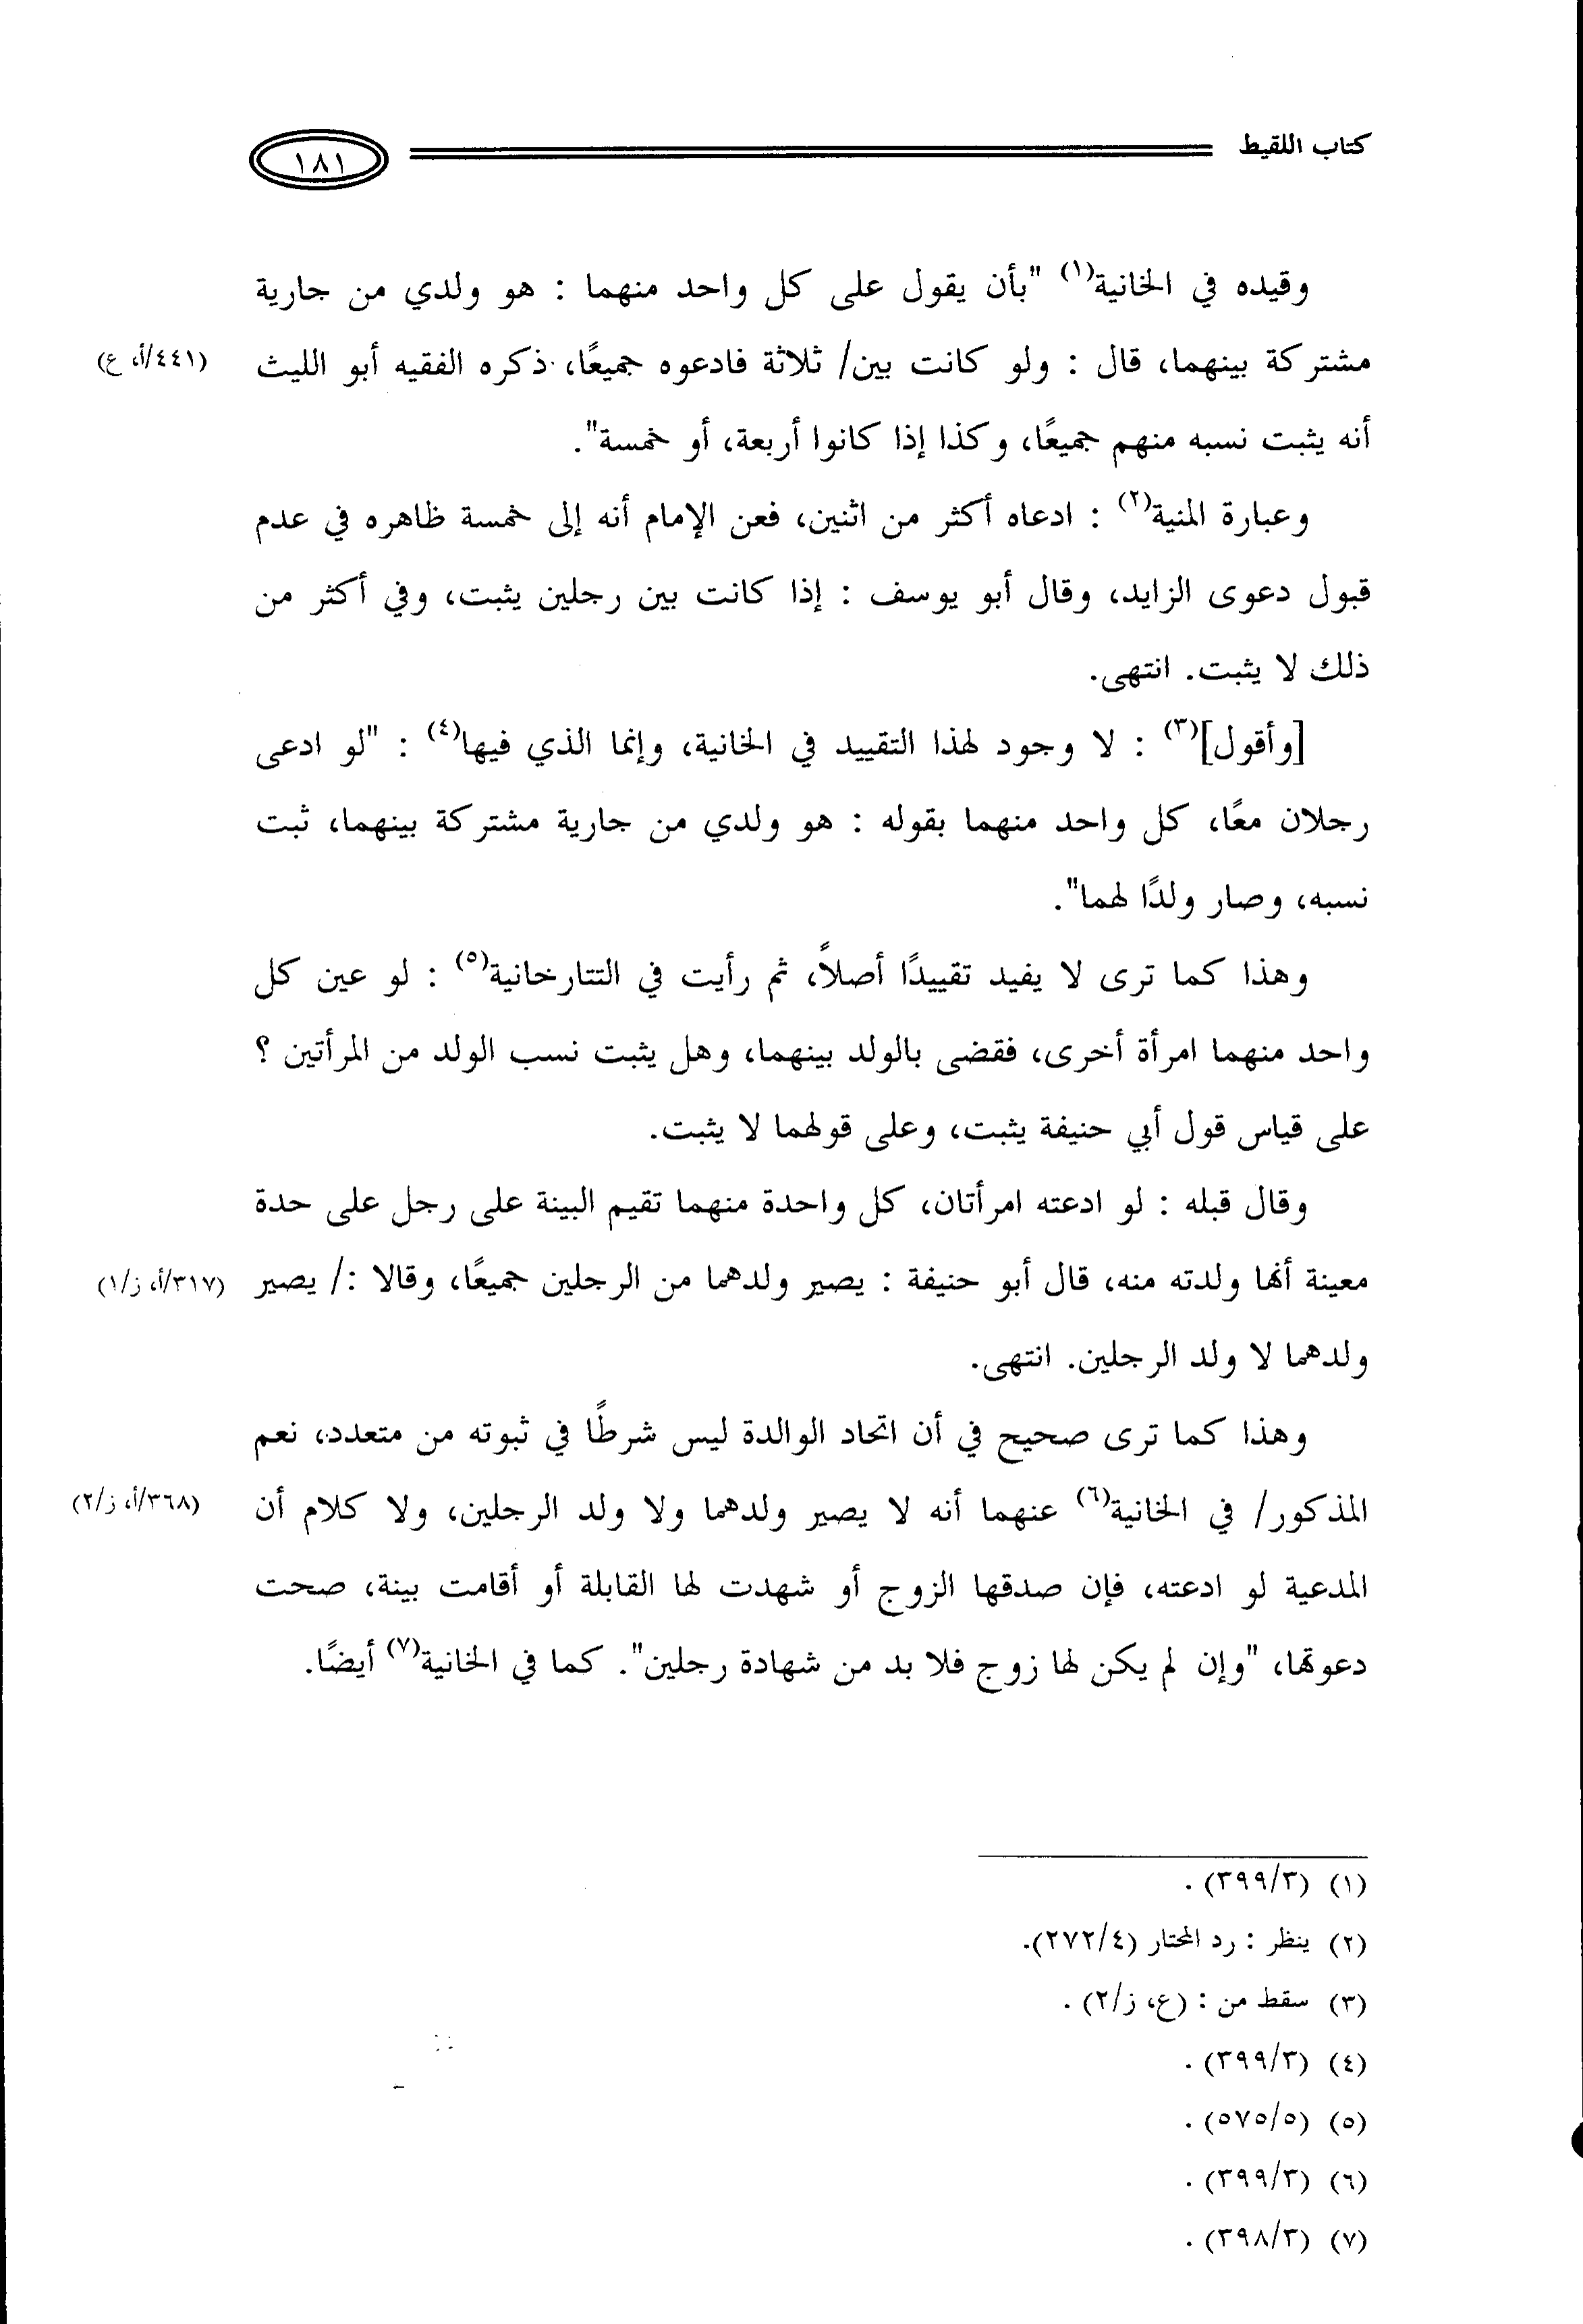 كتاب اللقيط ١٨١
وقيده في الخانية(١) "بأن يقول على كل واحد منهما : هو ولدي من جارية
مشتركة بينهما، قال : ولو كانت بين/ ثلاثة فادعوه جميعًا، ذكره الفقيه أبو الليث (٤٤١/أ، ع)
أنه يثبت نسبه منهم جميعًا، وكذا إذا كانوا أربعة، أو خمسة".
وعبارة المنية(٢) : ادعاه أكثر من اثنين، فعن الإمام أنه إلى خمسة ظاهره في عدم
قبول دعوى الزايد، وقال أبو يوسف : إذا كانت بين رجلين يثبت، وفي أكثر من
ذلك لا يثبت. انتهى.
[وأقول](٣) : لا وجود لهذا التقييد في الخانية، وإنما الذي فيها(٤) : "لو ادعى
رجلان معًا، كل واحد منهما بقوله : هو ولدي من جارية مشتركة بينهما، ثبت
نسبه، وصار ولدًا لهما".
وهذا كما ترى لا يفيد تقييدًا أصلاً، ثم رأيت في التتارخانية(٥) : لو عين كل
واحد منهما امرأة أخرى، فقضى بالولد بينهما، وهل يثبت نسب الولد من المرأتين ؟
على قياس قول أبي حنيفة يثبت، وعلى قولهما لا يثبت.
وقال قبله : لو ادعته امرأتان، كل واحدة منهما تقيم البينة على رجل على حدة
معينة أنها ولدته منه، قال أبو حنيفة : يصير ولدهما من الرجلين جميعًا، وقالا :/ يصير (٣١٧/أ، ز/١)
ولدهما لا ولد الرجلين. انتهى.
وهذا كما ترى صحيح في أن اتحاد الوالدة ليس شرطًا في ثبوته من متعدد، نعم
المذكور/ في الخانية(٦) عنهما أنه لا يصير ولدهما ولا ولد الرجلين، ولا كلام أن (٣٦٨/أ، ز/٢)
المدعية لو ادعته، فإن صدقها الزوج أو شهدت لها القابلة أو أقامت بينة، صحت
دعوتها، "وإن لم يكن لها زوج فلا بد من شهادة رجلين". كما في الخانية(٧) أيضًا.
(١) (٣٩٩/٣) .
(٢) ينظر : رد المحتار (٢٧٢/٤).
(٣) سقط من : (ع، ز/٢) .
(٤) (٣٩٩/٣) .
(٥) (٥٧٥/٥) .
(٦) (٣٩٩/٣) .
(٧) (٣٩٨/٣) .